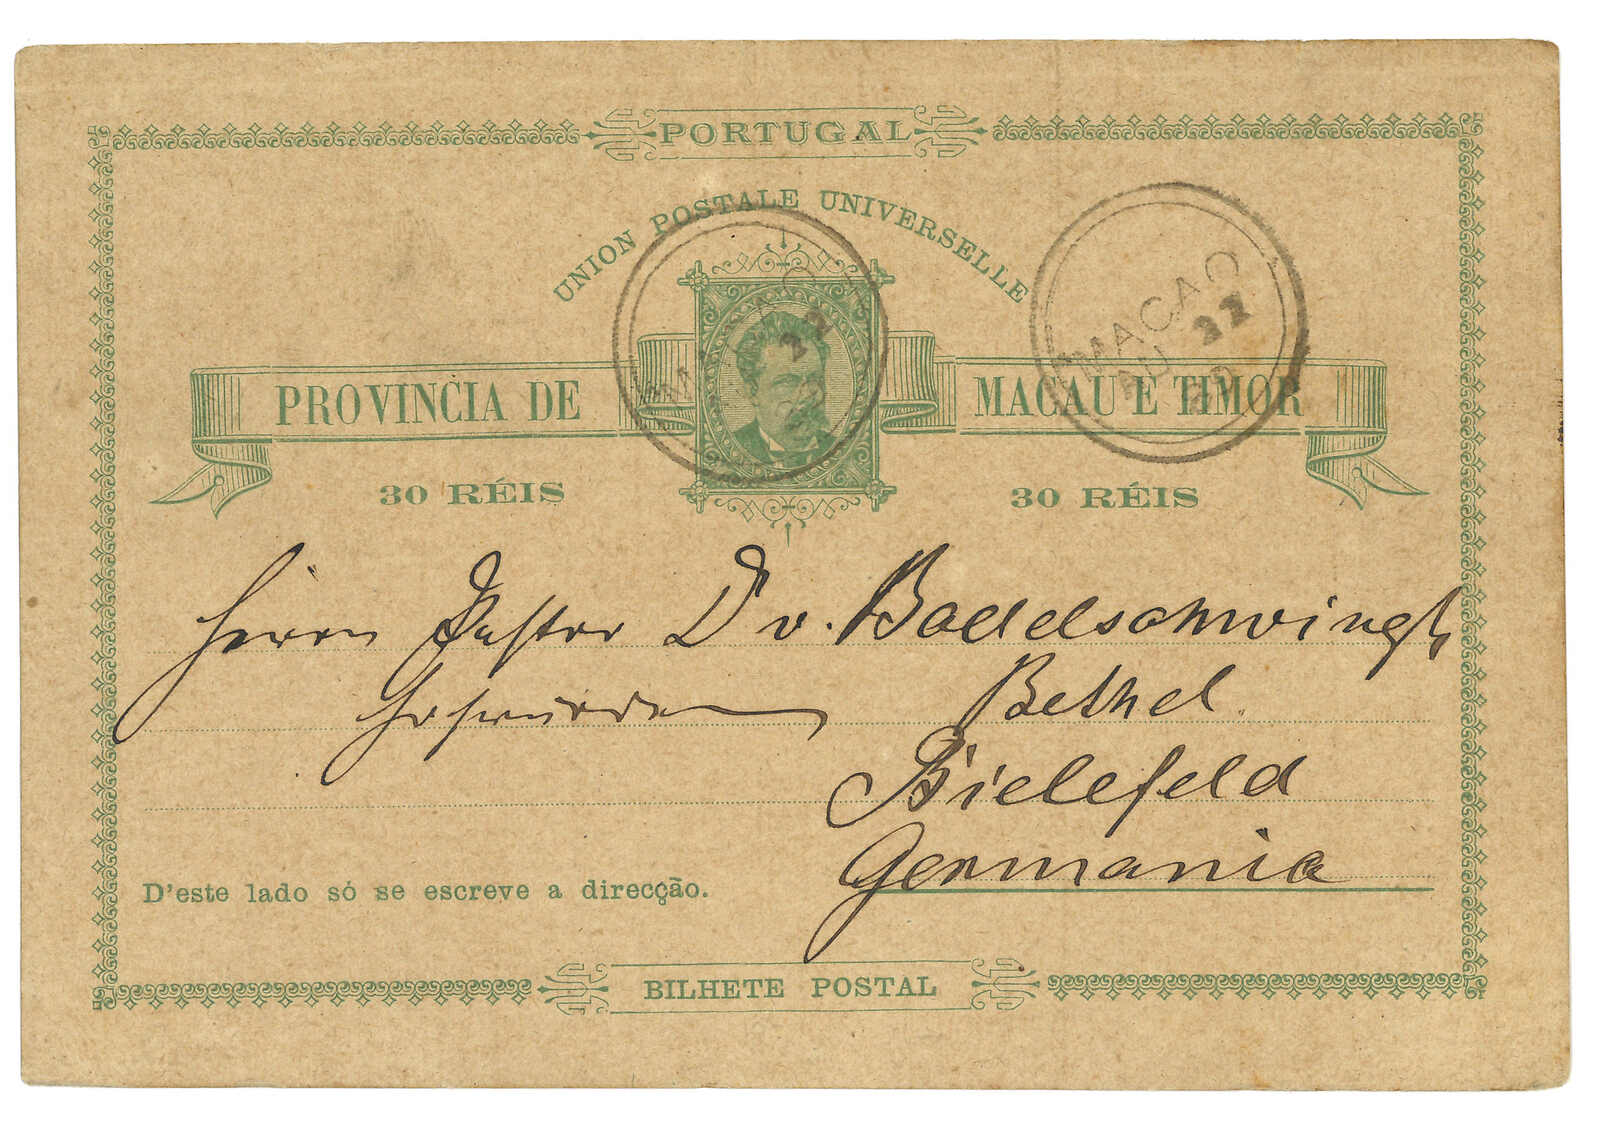 PORTUGAL
UNION POSTALE UNIVERSELLE
MACAO
22
MACAO
AU 22
PROVINCIA DE MACAU E TIMOR
30 RÉIS 30 RÉIS
Herrn Pastor D v. Bodelschwingh
Bethel
Bielefeld
Germania
D'este lado só se escreve a direcção.
BILHETE POSTAL